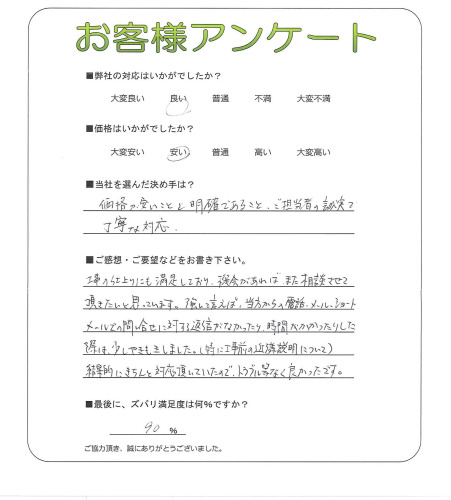 お客様アンケート
■弊社の対応はいかがでしたか？
大変良い　良い　普通　不満　大変不満
■価格はいかがでしたか？
大変安い　安い　普通　高い　大変高い
■当社を選んだ決め手は？
価格が安いことと明確であること、ご担当者の誠実で
丁寧な対応。
■ご感想・ご要望などをお書き下さい。
工事の仕上りにも満足しており、機会があればまた相談させて
頂きたいと思っています。強いて言えば、当方からの電話・メール・ショート
メールでの問い合せに対する返信がなかったり、時間がかかったりした
際は、少しやきもきしました。(特に工事前の近隣説明について)
結果的にきちんと対応頂いていたので、トラブル等なく良かったです。
■最後に、ズバリ満足度は何%ですか？
90 %
ご協力頂き、誠にありがとうございました。